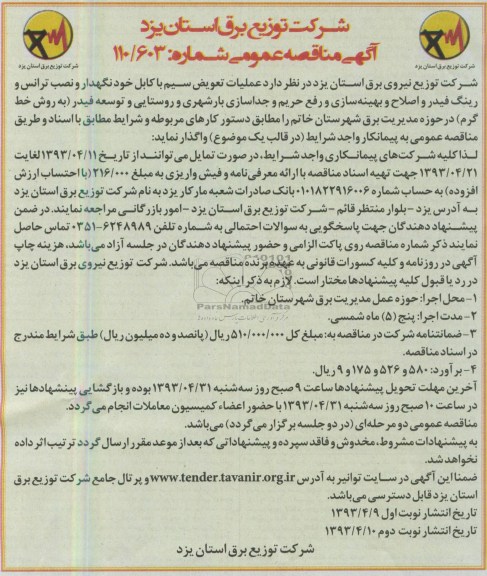 شرکت توزیع برق استان یزد
آگهی مناقصه عمومی شماره: ۱۱۰/۶۰۳
شرکت توزیع برق استان یزد
شرکت توزیع برق استان یزد
شرکت توزیع نیروی برق استان یزد در نظر دارد عملیات تعویض سیم با کابل خود نگهدار و نصب ترانس و
رینگ فیدر و اصلاح و بهینه‌سازی و رفع حریم و جداسازی بار شهری و روستایی و توسعه فیدر (به روش خط
گرم) در حوزه مدیریت برق شهرستان خاتم را مطابق دستور کارهای مربوطه و شرایط مطابق با اسناد و طریق
مناقصه عمومی به پیمانکار واجد شرایط (در قالب یک موضوع) واگذار نماید:
لذا کلیه شرکت‌های پیمانکاری واجد شرایط، در صورت تمایل می توانند از تاریخ ۱۳۹۳/۰۴/۱۱ لغایت
۱۳۹۳/۰۴/۲۱ جهت تهیه اسناد مناقصه با ارائه معرفی‌نامه و فیش واریزی به مبلغ ۲۱۶/۰۰۰ (با احتساب ارزش
افزوده) به حساب شماره ۰۱۰۱۸۲۲۹۱۶۰۰۶ بانک صادرات شعبه مارکار یزد به نام شرکت توزیع برق استان یزد
به آدرس یزد -بلوار منتظر قائم -شرکت توزیع برق استان یزد -امور بازرگانی مراجعه نمایند. در ضمن
پیشنهاد دهندگان جهت پاسخگویی به سوالات احتمالی به شماره تلفن ۶۲۴۸۹۸۹-۰۳۵۱ تماس حاصل
نمایند ذکر شماره مناقصه روی پاکت الزامی و حضور پیشنهاد دهندگان در جلسه آزاد می‌باشد، هزینه چاپ
آگهی در روزنامه و کلیه کسورات قانونی به عهده برنده مناقصه می‌باشد. شرکت توزیع نیروی برق استان یزد
در رد یا قبول کلیه پیشنهادها مختار است. لازم به ذکر اینکه:
۱-محل اجرا: حوزه عمل مدیریت برق شهرستان خاتم.
۲-مدت اجرا: پنج (۵) ماه شمسی.
۳-ضمانتنامه شرکت در مناقصه به: مبلغ کل ۵۱۰/۰۰۰/۰۰۰ ریال (پانصد و ده میلیون ریال) طبق شرایط مندرج
در اسناد مناقصه.
۴-برآورد: ۵۸۰ و ۵۲۶ و ۱۷۵ و ۹ ریال.
آخرین مهلت تحویل پیشنهادها ساعت ۹ صبح روز سه‌شنبه ۱۳۹۳/۰۴/۳۱ بوده و بازگشایی پیشنهادها نیز
در ساعت ۱۰ صبح روز سه‌شنبه ۱۳۹۳/۰۴/۳۱ با حضور اعضاء کمیسیون معاملات انجام می گردد.
مناقصه عمومی دو مرحله‌ای (در دو جلسه برگزار می گردد) می‌باشد.
به پیشنهادات مشروط، مخدوش و فاقد سپرده و پیشنهاداتی که بعد از موعد مقرر ارسال گردد ترتیب اثر داده
نخواهد شد.
ضمنا این آگهی در سایت توانیر به آدرس www.tender.tavanir.org.ir و پرتال جامع شرکت توزیع برق
استان یزد قابل دسترسی می‌باشد.
تاریخ انتشار نوبت اول ۱۳۹۳/۴/۹
تاریخ انتشار نوبت دوم ۱۳۹۳/۴/۱۰
شرکت توزیع برق استان یزد